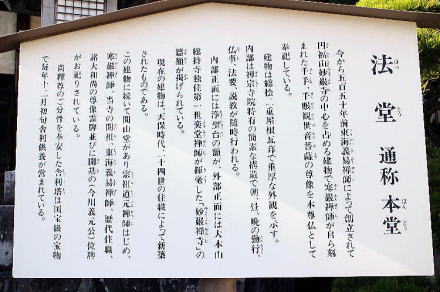 法堂 通称 本堂
はっとう
ほんどう
今から五百五十年前東海義易禅師によって創立されて
円福山妙厳寺の中心を占める建物で寒巌禅師が自ら刻
まれた千手千眼観世音菩薩の尊像を本尊仏として
奉祀している。
建物は総桧二重屋根瓦葺で重厚な外観を示す。
内部は禅宗寺院特有の簡素な構造で朝、昼、晩の勤行、
仏事、法要、説教が随時行われる。
内部正面には浄聖台の額が、外部正面には大本山
総持寺独住第一世奕堂禅師が揮毫した「妙厳禅寺」の
扁額が掲げられている。
現在の建物は、天保時代、二十四世の住職によって新築
されたものである。
この建物に続いて開山堂があり宗祖道元禅師はじめ、
寒巌禅師、当寺の開祖、東海義易禅師、歴代住職、
諸大和尚の尊像霊牌並びに開基の(今川義元公)位牌
がお祀りされている。
尚釋尊のご分骨を奉安した舎利塔は国宝級の宝物
で毎年十二月初旬舎利供養が営まれている。